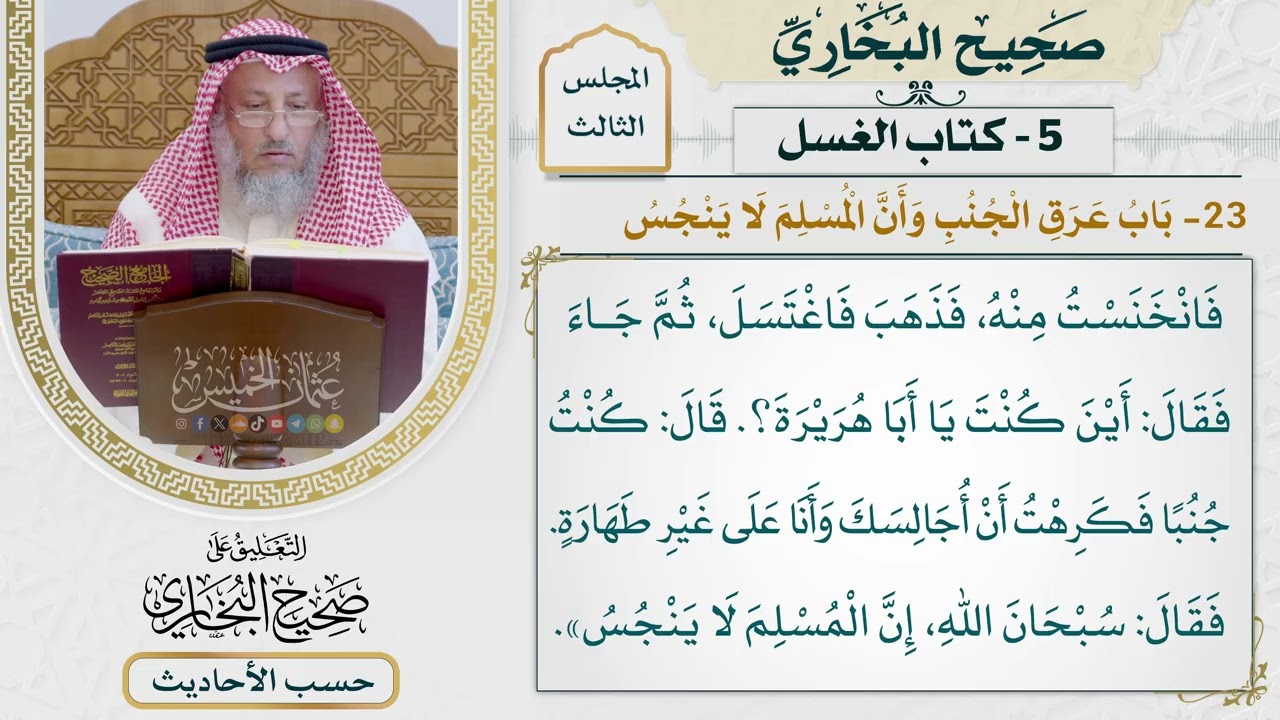 صَحِيح البُخَارِيِّ
المجلس
الثالث
5 - كتاب الغسل
23- بَابُ عَرَقِ الْجُنُبِ وَأَنَّ الْمُسْلِمَ لَا يَنْجُسُ
فَانْخَنَسْتُ مِنْهُ، فَذَهَبَ فَاغْتَسَلَ، ثُمَّ جَاءَ
فَقَالَ: أَيْنَ كُنْتَ يَا أَبَا هُرَيْرَةَ؟. قَالَ: كُنْتُ
جُنُبًا فَكَرِهْتُ أَنْ أُجَالِسَكَ وَأَنَا عَلَى غَيْرِ طَهَارَةٍ.
فَقَالَ: سُبْحَانَ اللهِ، إِنَّ الْمُسْلِمَ لَا يَنْجُسُ».
الجامع الصحيح
عثمان الخميس
التَّعْلِيقُ عَلَى
صَحِيحِ البُخَارِي
حسب الأحاديث